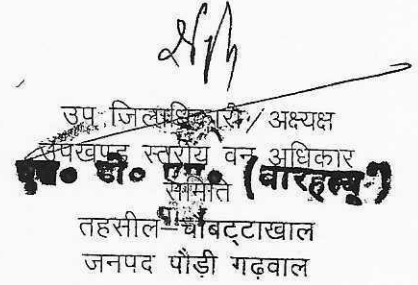 उप जिलाधिकारी/ अक्ष्यक्ष
उपखण्ड स्तरीय वन अधिकार
एस० डी० एम०
समिति
तहसील–चौबट्टाखाल
जनपद पौड़ी गढ़वाल